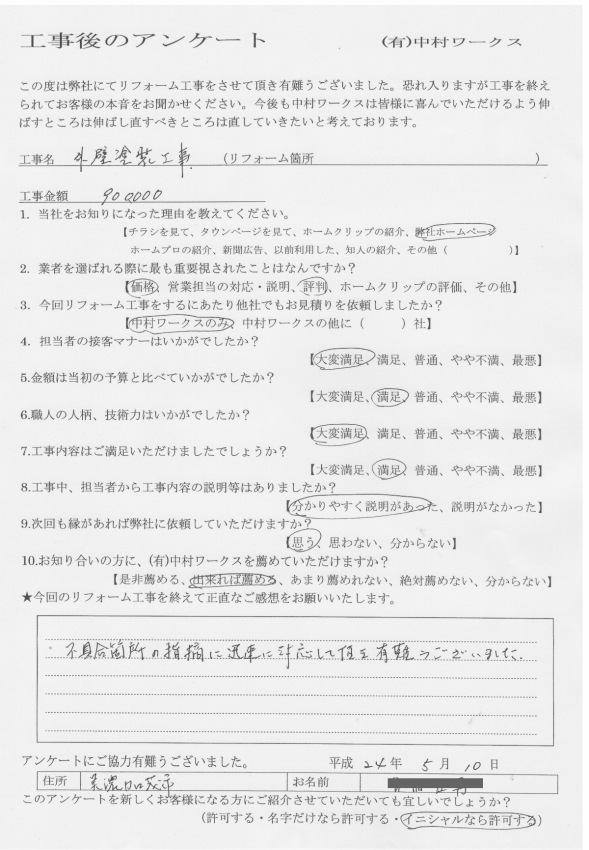 工事後のアンケート (有)中村ワークス
この度は弊社にてリフォーム工事をさせて頂き有難うございました。恐れ入りますが工事を終え
られてお客様の本音をお聞かせください。今後も中村ワークスは皆様に喜んでいただけるよう伸
ばすところは伸ばし直すべきところは直していきたいと考えております。
工事名 外壁塗装工事 (リフォーム箇所 )
工事金額 900000
1. 当社をお知りになった理由を教えてください。
【チラシを見て、タウンページを見て、ホームクリップの紹介、弊社ホームページ
ホームプロの紹介、新聞広告、以前利用した、知人の紹介、その他( )】
2. 業者を選ばれる際に最も重要視されたことはなんですか?
【価格、営業担当の対応・説明、評判、ホームクリップの評価、その他】
3. 今回リフォーム工事をするにあたり他社でもお見積りを依頼しましたか?
【中村ワークスのみ、中村ワークスの他に( )社】
4. 担当者の接客マナーはいかがでしたか?
【大変満足、満足、普通、やや不満、最悪】
5.金額は当初の予算と比べていかがでしたか?
【大変満足、満足、普通、やや不満、最悪】
6.職人の人柄、技術力はいかがでしたか?
【大変満足、満足、普通、やや不満、最悪】
7.工事内容はご満足いただけましたでしょうか?
【大変満足、満足、普通、やや不満、最悪】
8.工事中、担当者から工事内容の説明等はありましたか?
【分かりやすく説明があった、説明がなかった】
9.次回も縁があれば弊社に依頼していただけますか?
【思う、思わない、分からない】
10.お知り合いの方に、(有)中村ワークスを薦めていただけますか?
【是非薦める、出来れば薦める、あまり薦めれない、絶対薦めない、分からない】
★今回のリフォーム工事を終えて正直なご感想をお願いいたします。
・不具合箇所の指摘に迅速に対応して頂き有難うございました。
アンケートにご協力有難うございました。 平成 24年 5月 10日
住所 美濃加茂市 お名前
このアンケートを新しくお客様になる方にご紹介させていただいても宜しいでしょうか?
(許可する・名字だけなら許可する・イニシャルなら許可する)